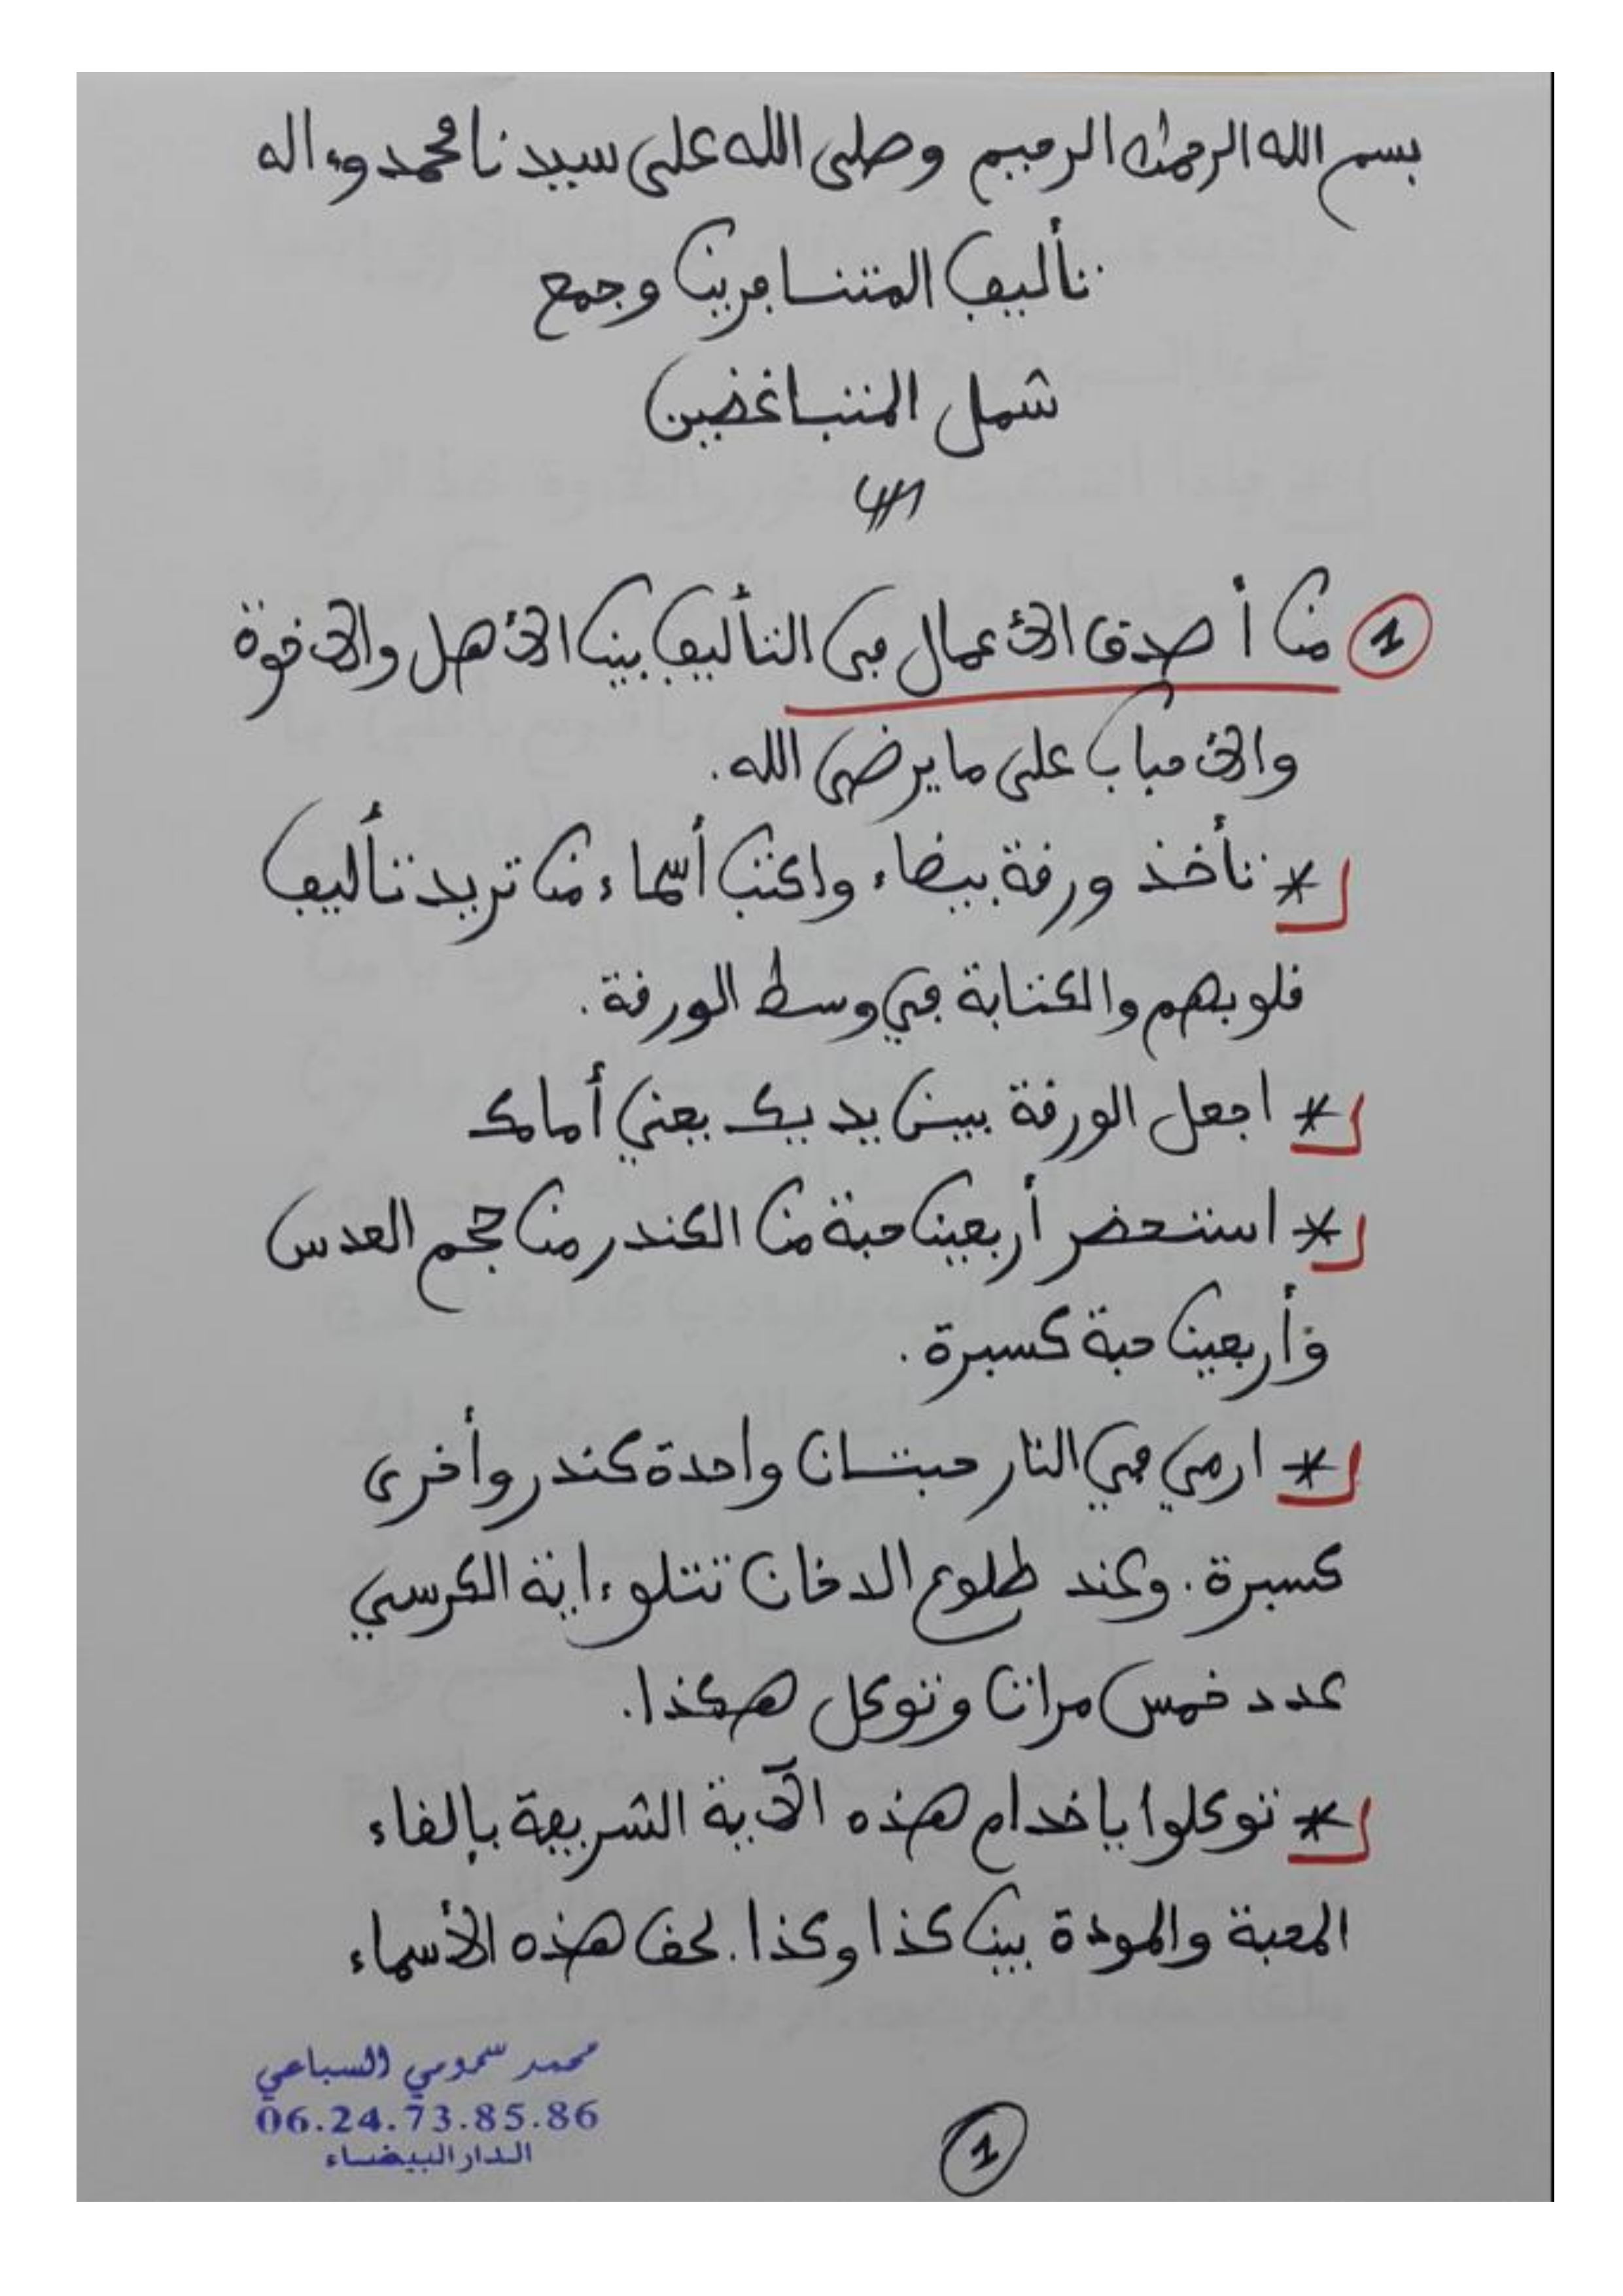 بسم الله الرحمن الرحيم وصلى الله على سيدنا محمد وءاله
تأليف المتنافرين وجمع
شمل المتباغضين
1 من أصدق الأعمال في التأليف بين الأهل والإخوة
والأحباب على ما يرضي الله.
* تأخذ ورقة بيضاء واكتب أسماء من تريد تأليف
قلوبهم والكتابة في وسط الورقة.
* اجعل الورقة بين يديك يعني أمامك
* استحضر أربعين حبة من الكندر من حجم العدس
وأربعين حبة كسبرة.
* ارمي في النار حبتان واحدة كندر وأخرى
كسبرة. وعند طلوع الدخان تتلو ءاية الكرسي
عدد خمس مرات وتوكل هكذا.
* توكلوا يا خدام هذه الآية الشريفة بإلقاء
المحبة والمودة بين كذا وكذا. بحق هذه الأسماء
محمد سمومي السباعي
06.24.73.85.86
الدار البيضاء
1